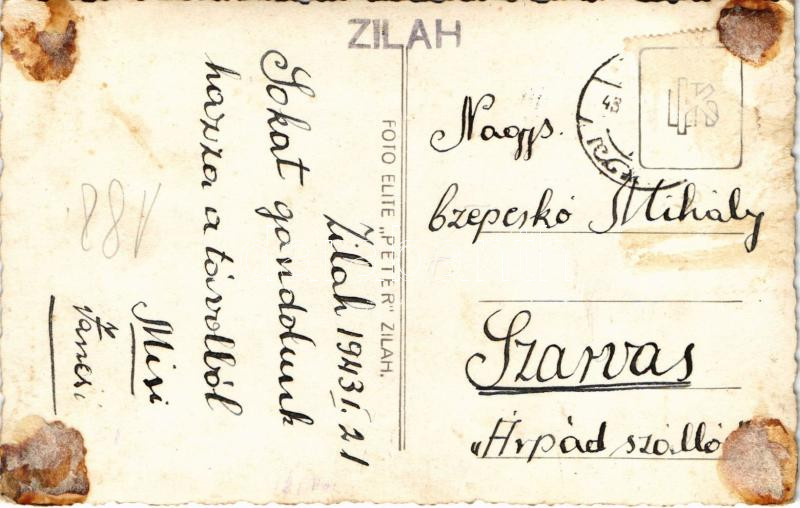 ZILAH
Zilah 1943 I. 21
Sokat gondolunk
haxxa a távolból
Misi
Váncsi
188
FOTO ELITE „PÉTER" ZILAH.
43
Nagys.
Czepcskó Mihály
Szarvas
„Árpád szálló"